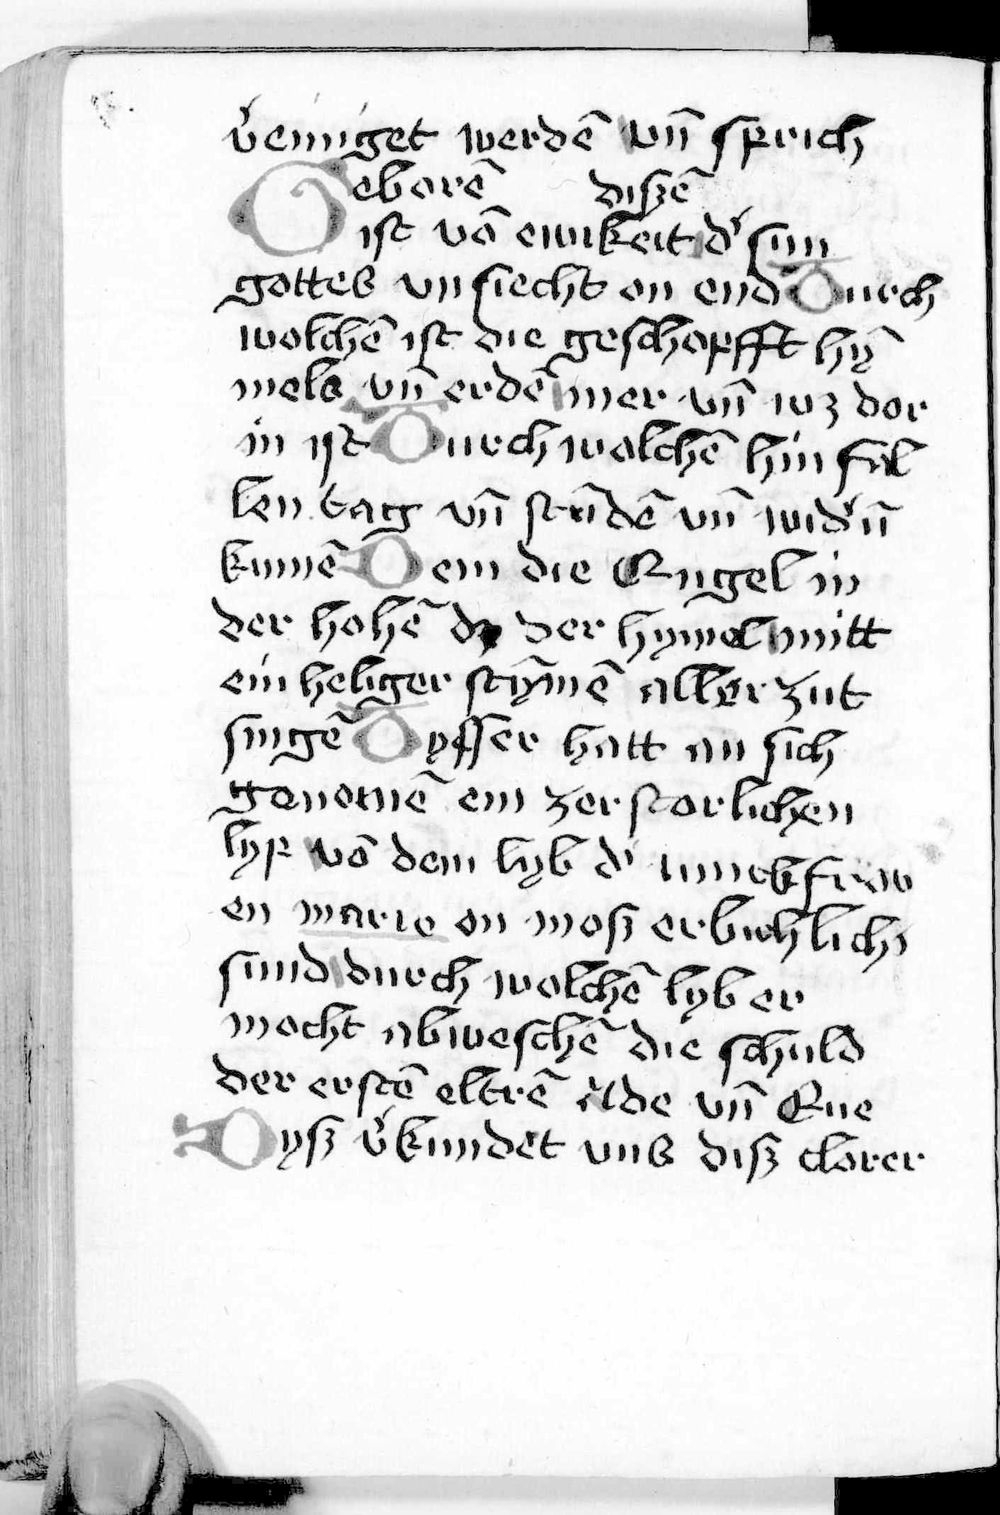 v̾einiget werdē vn̄ sprich
Geborē diszē
ist vō ewikeit d̾ sun
gottes vnsiecht on end Durch
wolchē ist die geschopfft hȳ
mels vn̄ erdē mer vn̄ wz dor
in ist Durch wolchē hin fal
len tag vn̄ stūdē vn̄ wid̾ū
kumē Dem die Engel in
der hohē dz der hymel mitt
ein heliger stȳmē aller zit
singē Dysser hatt an sich
genomē ein zerstorlichen
lyp vō dem lyb d̾ iunckfrow
en marie on mosz erbichlichs
sund durch wolchē lyb er
mocht abweschē die schuld
der erstē eltrē ade vn̄ Eue
Dysz v̾kundet vns disz clorer